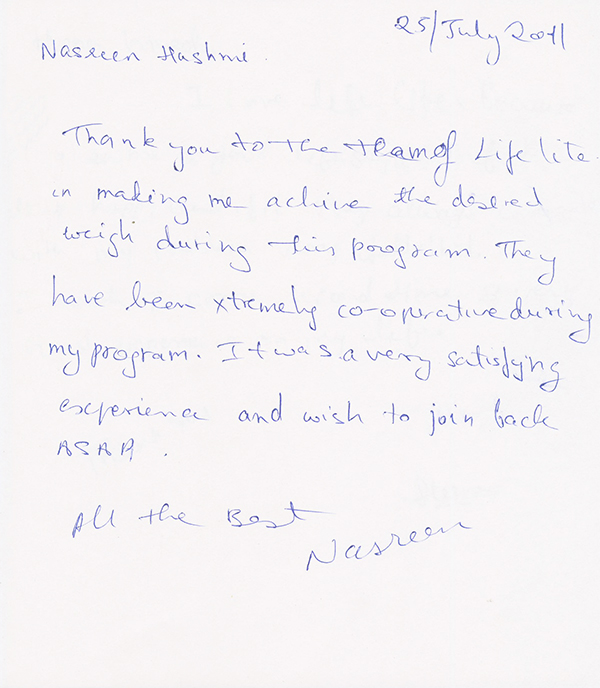 25/July 2011
Nasreen Hashmi.
Thank you to the team of Life lite
in making me achive the desered
weigh during this program. They
have been xtremely co-operative during
my program. It was a very satisfying
experience and wish to join back
ASAP.
All the Best
Nasreen